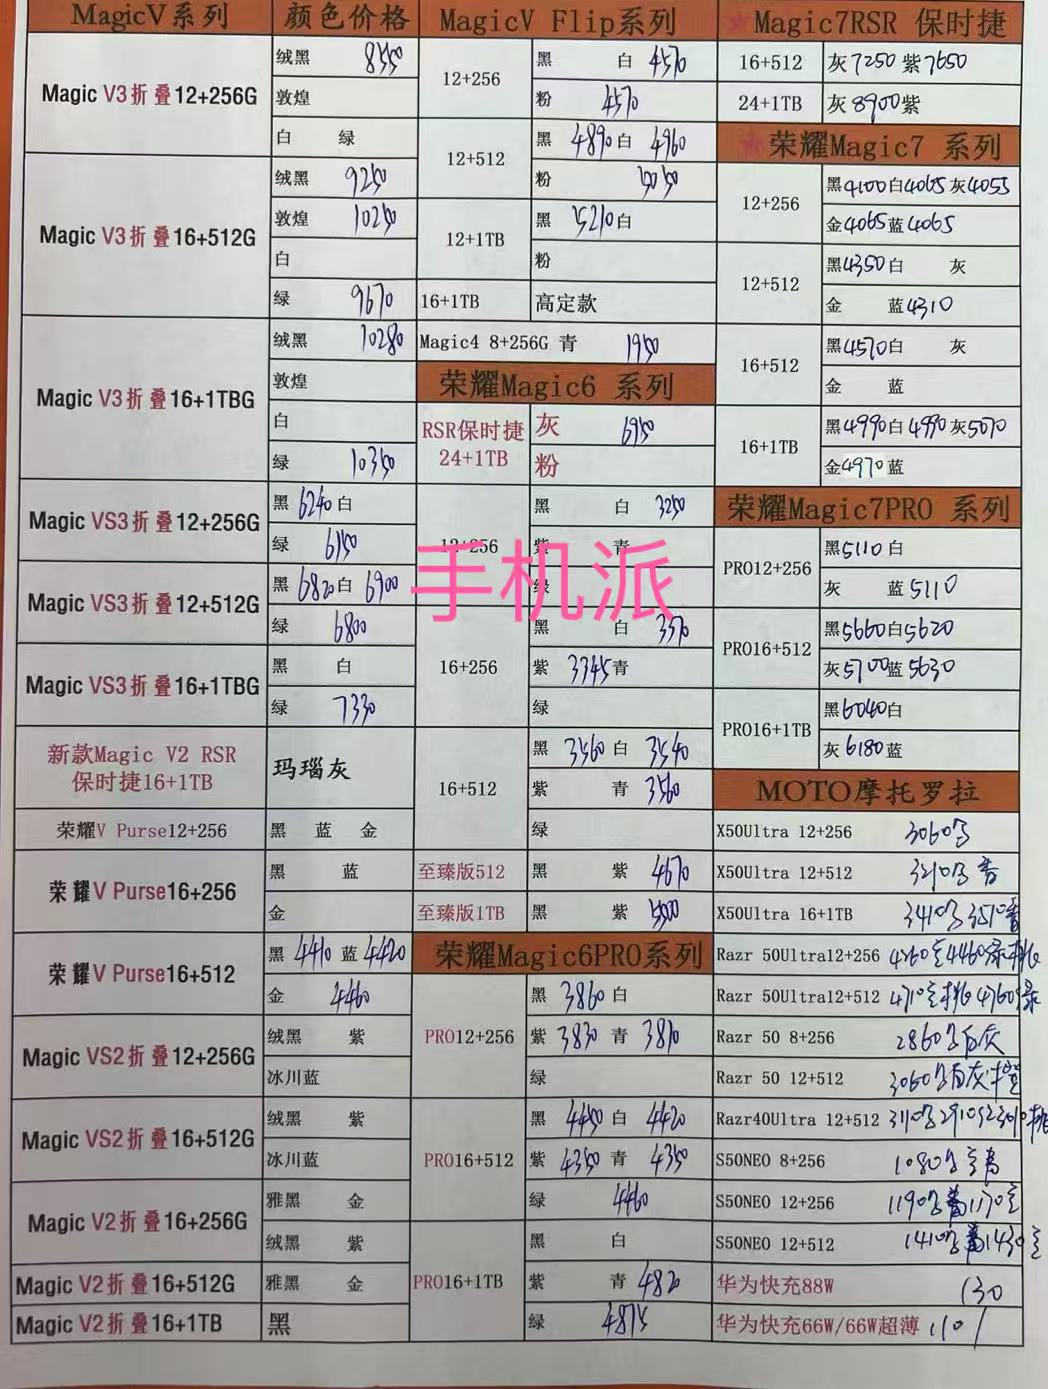 MagicV系列 颜色价格
Magic V3折叠12+256G 绒黑 8550
敦煌
白 绿
Magic V3折叠16+512G 绒黑 9250
敦煌 10250
白
绿 9670
Magic V3折叠16+1TBG 绒黑 10280
敦煌
白
绿 10350
Magic VS3折叠12+256G 黑 6240 白
绿 6150
Magic VS3折叠12+512G 黑 6820 白 6900
绿 6800
Magic VS3折叠16+1TBG 黑 白
绿 7330
新款Magic V2 RSR
保时捷16+1TB 玛瑙灰
荣耀V Purse12+256 黑 蓝 金
荣耀V Purse16+256 黑 蓝
金
荣耀V Purse16+512 黑 4410 蓝 4420
金 4460
Magic VS2折叠12+256G 绒黑 紫
冰川蓝
Magic VS2折叠16+512G 绒黑 紫
冰川蓝
Magic V2折叠16+256G 雅黑 金
绒黑 紫
Magic V2折叠16+512G 雅黑 金
Magic V2折叠16+1TB 黑
MagicV Flip系列
12+256 黑 白 4570
粉 4570
12+512 黑 4890 白 4960
粉 5050
12+1TB 黑 5210 白
粉
16+1TB 高定款
Magic4 8+256G 青 1950
荣耀Magic6 系列
RSR保时捷 灰 6950
24+1TB 粉
12+256 黑 白 3250
紫 青
绿
手机派
16+256 黑 白 3570
紫 3345 青
绿
16+512 黑 3560 白 3540
紫 青 3560
绿
至臻版512 黑 紫 4670
至臻版1TB 黑 紫
荣耀Magic6PRO系列
PRO12+256 黑 3860 白
紫 3830 青 3810
绿
PRO16+512 黑 4450 白 4420
紫 4350 青 4350
绿 4460
PRO16+1TB 黑 白
紫 青 4820
绿 4815
Magic7RSR 保时捷
16+512 灰 7250 紫 7650
24+1TB 灰 8900 紫
荣耀Magic7 系列
12+256 黑 4100 白 4065 灰 4055
金 4065 蓝 4065
12+512 黑 4350 白 灰
金 蓝 4310
16+512 黑 4570 白 灰
金 蓝
16+1TB 黑 4990 白 4990 灰 5070
金 4970 蓝
荣耀Magic7PRO 系列
PRO12+256 黑 5110 白
灰 蓝 5110
PRO16+512 黑 5660 白 5620
灰 5700 蓝 5630
PRO16+1TB 黑 6040 白
灰 6180 蓝
MOTO摩托罗拉
X50Ultra 12+256 3060
X50Ultra 12+512 3210 青
X50Ultra 16+1TB 3410 3510 青
Razr 50Ultra12+256 4260 4460 绿 桃
Razr 50Ultra12+512 4710 桃 4760 绿
Razr 50 8+256 2860 灰
Razr 50 12+512 3060 灰 橙
Razr40Ultra 12+512 3110 2910
S50NEO 8+256 1080
S50NEO 12+256 1190 1170
S50NEO 12+512 1410 1430
华为快充88W 130
华为快充66W/66W超薄 110